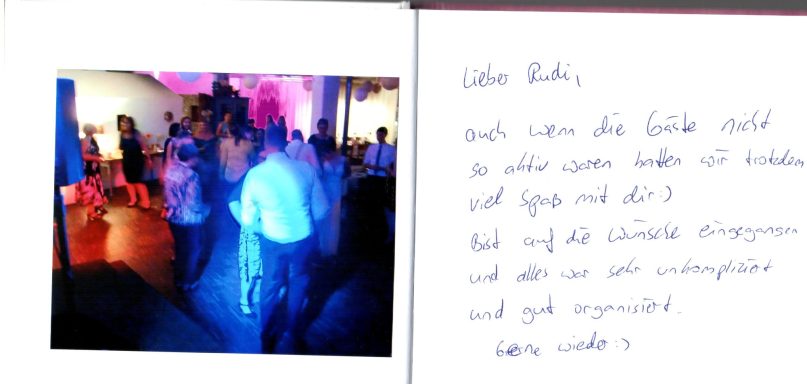 Lieber Rudi,
auch wenn die Gäste nicht
so aktiv waren hatten wir trotzdem
viel Spaß mit dir :)
Bist auf die Wünsche eingegangen
und alles war sehr unkompliziert
und gut organisiert.
Gerne wieder :)